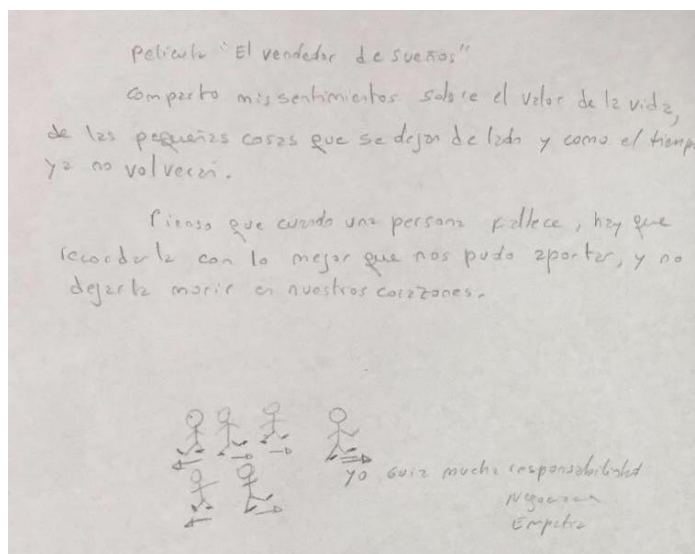 Pelicula "El vendedor de sueños"
Comparto mis sentimientos sobre el valor de la vida,
de las pequeñas cosas que se dejan de lado y como el tiempo
ya no volverán.
Pienso que cuando una persona fallece, hay que
recordarla con lo mejor que nos pudo aportar, y no
dejarla morir en nuestros corazones.
yo guia mucha responsabilidad
Empatia